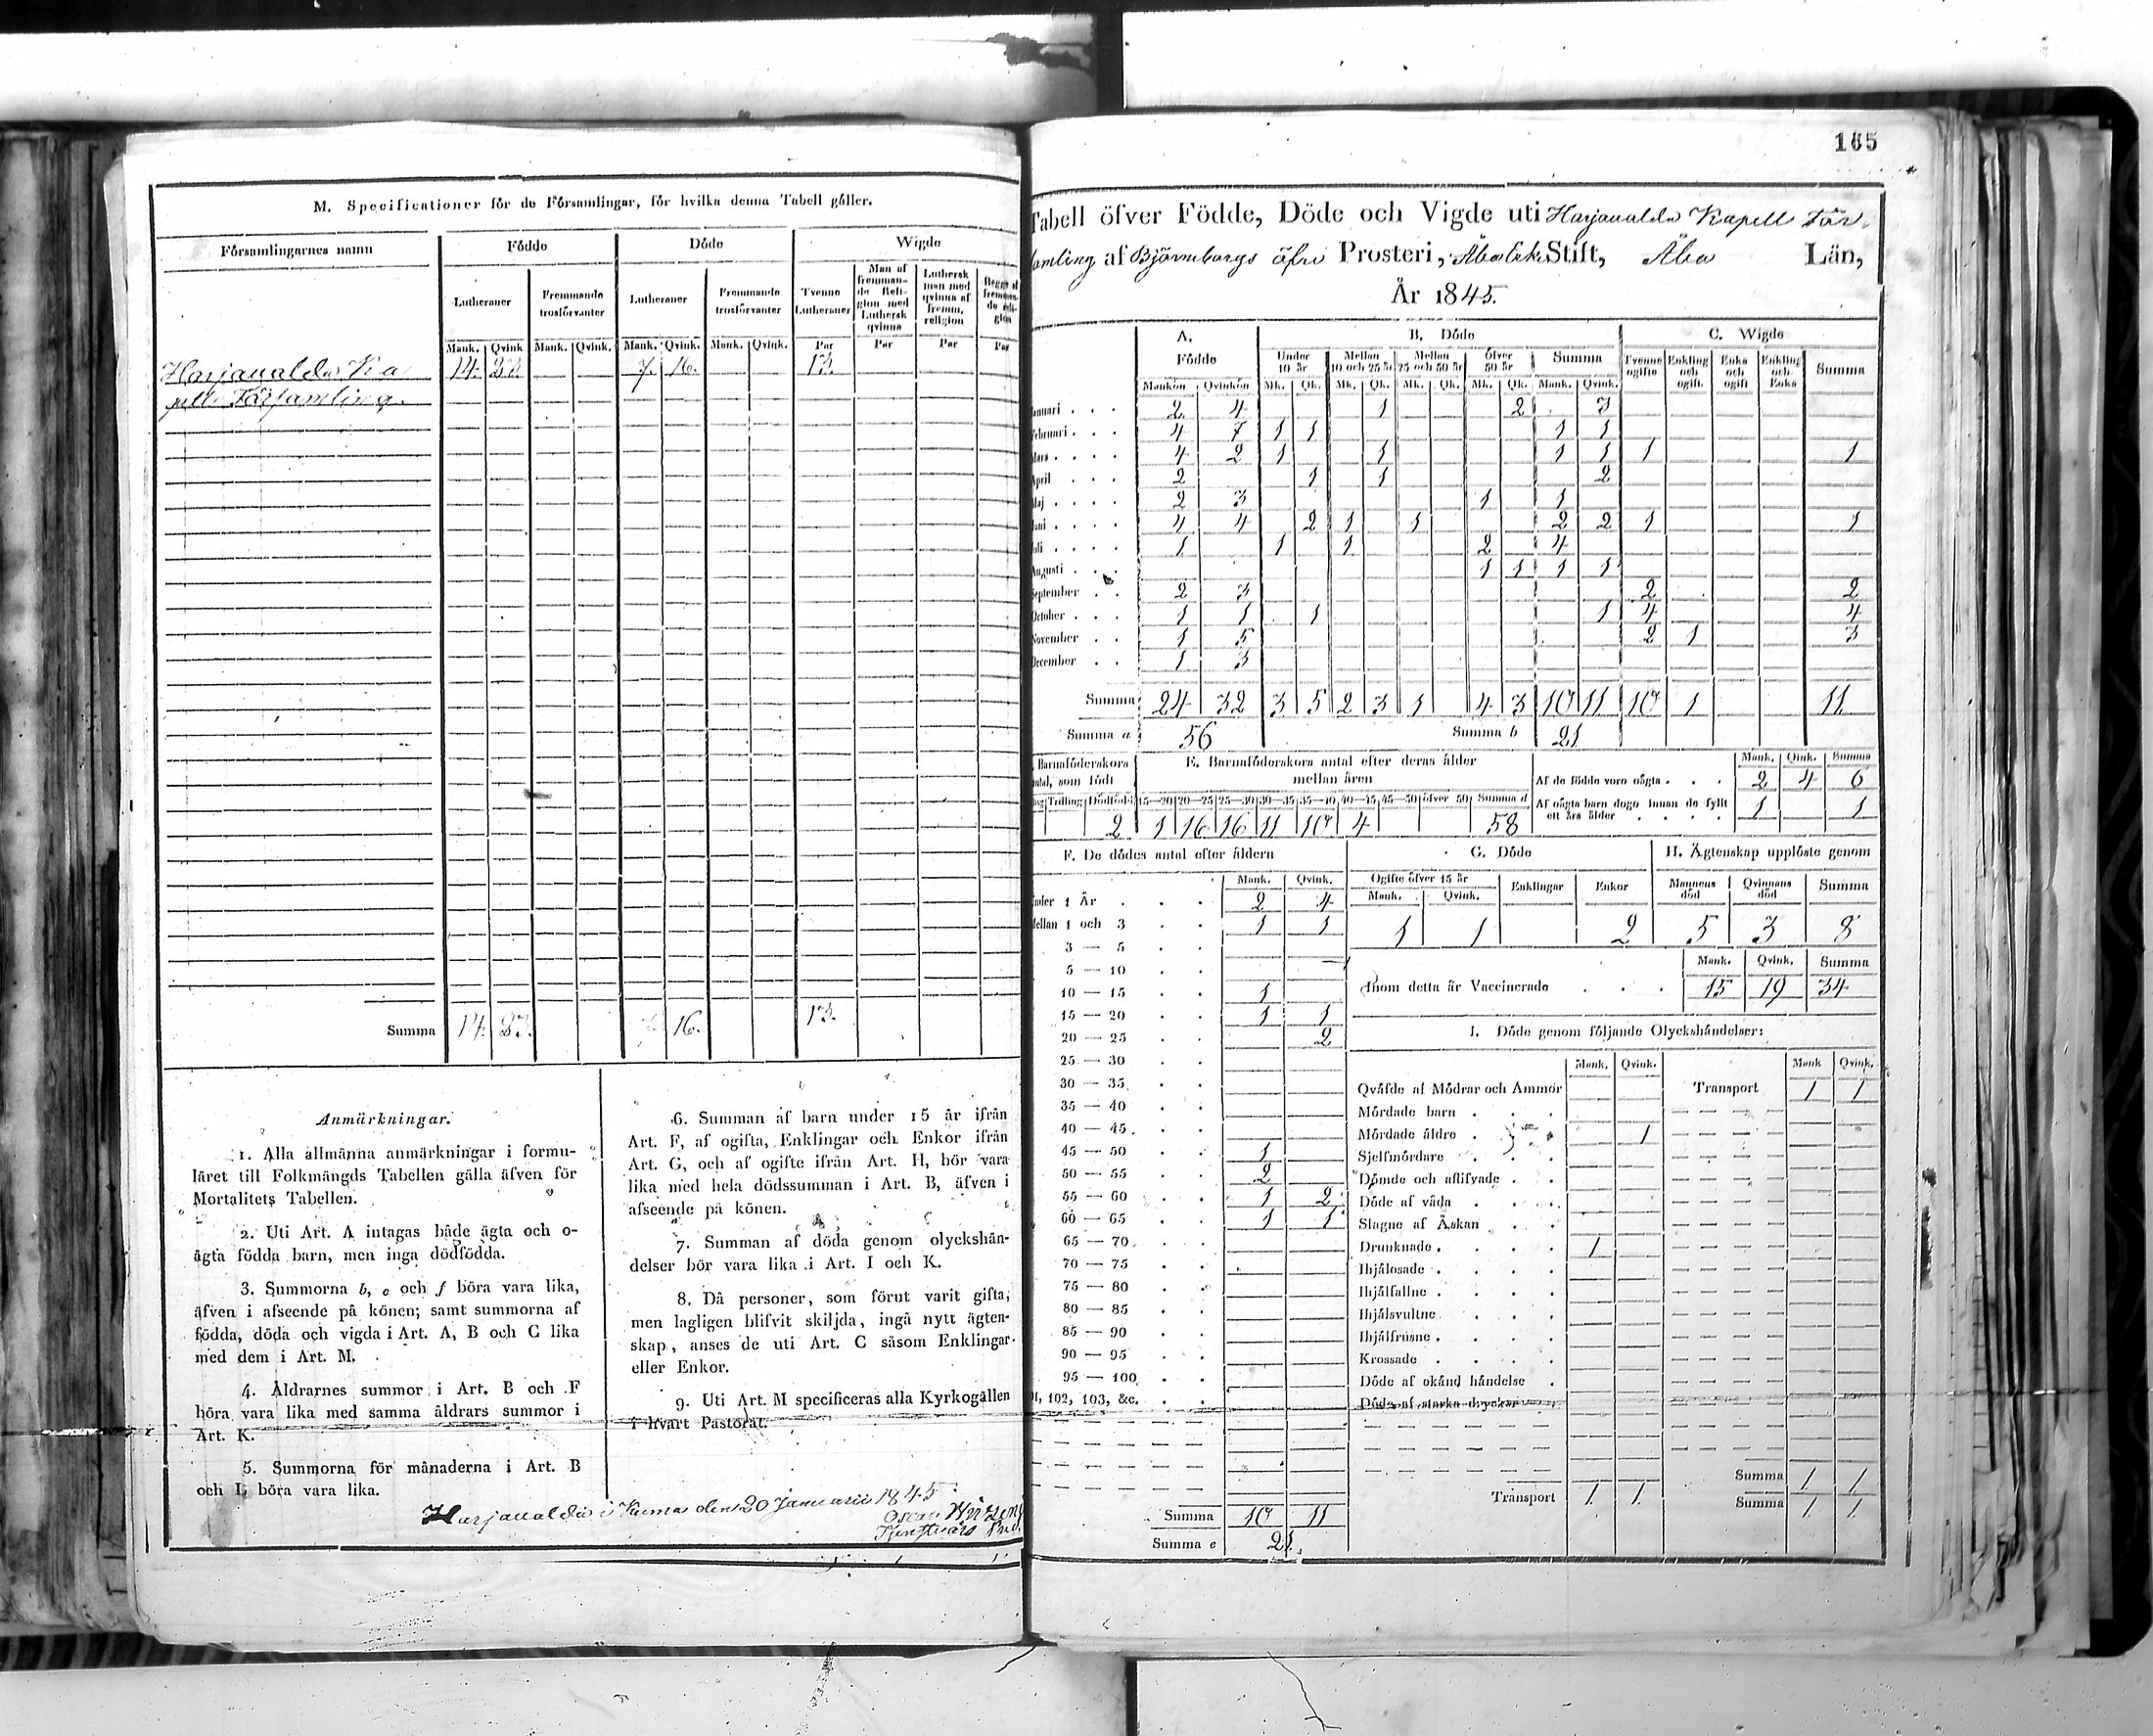 M. Specificationer för de Församlingar, för hvilka denna Tabell gäller.
Församlingarnes namn Födde Döde Wigde
Lutheraner Fremmande trosförvanter Lutheraner Fremmande trosförvanter Tvenne Lutheraner Man af fremmande Religion med Luthersk qvinna Luthersk man med qvinna af fremm. religion
Mank. Qvink Mank. Qvink. Mank. Qvink. Mank. Qvink. Par Par Par Par
Harjaualda Ka 14. 23 7. 16. 13.
pell Församling.
Summa 14. 23. 16. 13.
Anmärkningar.
1. Alla allmänna anmärkningar i formu-
läret till Folkmängds Tabellen gälla äfven för
Mortalitets Tabellen.
2. Uti Art. A intagas både ägta och o-
ägta födda barn, men inga dödfödda.
3. Summorna b, e och f böra vara lika,
äfven i afseende på könen; samt summorna af
födda, döda och vigda i Art. A, B och C lika
med dem i Art. M.
4. Åldrarnes summor i Art. B och F
böra vara lika med samma åldrars summor i
Art. K.
5. Summorna för månaderna i Art. B
och L böra vara lika.
6. Summan af barn under 15 år ifrån
Art. F, af ogifta, Enklingar och Enkor ifrån
Art. G, och af ogifte ifrån Art. H, bör vara
lika med hela dödssumman i Art. B, äfven i
afseende på könen.
7. Summan af döda genom olyckshän-
delser bör vara lika i Art. I och K.
8. Då personer, som förut varit gifta,
men lagligen blifvit skiljda, ingå nytt ägten-
skap, anses de uti Art. C såsom Enklingar
eller Enkor.
9. Uti Art. M specificeras alla Kyrkogällen
i hvart Pastorat.
Harjaualda i Kumo den 20 Januarii 1845.
Oscar
165
Tabell öfver Födde, Döde och Vigde uti Harjaualda Kapell För-
samling af Björneborgs öfre Prosteri, Åbo Erke Stift, Åbo Län,
År 1845.
A. Födde B. Döde C. Wigde
Under 10 år Mellan 10 och 25 år Mellan 25 och 50 år Öfver 50 år Summa Tvenne ogifte Enkling och ogift Enka och ogift Enkling och Enka Summa
Mankön Qvinkön Mk. Qk. Mk. Qk. Mk. Qk. Mk. Qk. Mank. Qvink.
Januari 2 4 1 2 3
Februari 4 7 1 1 1 1
Mars 4 2 1 1 1 1 1 1
April 2 1 1 2
Maj 2 3 1 1
Juni 4 4 2 1 1 2 2 1 1
Juli 1 1 1 2 4
Augusti 1 1 1 1
September 2 3 2 2
October 1 1 1 1 4 4
November 1 5 2 1 3
December 1 3
Summa 24 32 3 5 2 3 1 4 3 10 11 10 1 11
Summa a 56 Summa b 21
Barnaföderskors antal, som födt E. Barnaföderskors antal efter deras ålder mellan åren
Mank. Qink. Summa
Af de födde voro oägta 2 4 6
Af oägta barn dogo innan de fyllt ett års ålder 1 1
Trilling Dödfödd 15—20 20—25 25—30 30—35 35—40 40—45 45—50 öfver 50 Summa d
2 1 16 16 11 10 4 58
F. De dödes antal efter åldern
Mank. Qvink.
Under 1 År 2 4
Mellan 1 och 3 1 1
3 — 5
5 — 10
10 — 15 1
15 — 20 1 1
20 — 25 2
25 — 30
30 — 35
35 — 40
40 — 45
45 — 50 1
50 — 55 2
55 — 60 1 2
60 — 65 1 1
65 — 70
70 — 75
75 — 80
80 — 85
85 — 90
90 — 95
95 — 100
102, 103, &c.
Summa 10 11
Summa e 21.
G. Döde
Ogifte öfver 15 år Enklingar Enkor
Mank. Qvink.
1 1 2
H. Ägtenskap upplöste genom
Mannens död Qvinnans död Summa
5 3 8
Mank. Qvink. Summa
Inom detta år Vaccinerade 15 19 34
I. Döde genom följande Olyckshändelser:
Mank. Qvink. Mank Qvink.
Qväfde af Mödrar och Ammor Transport 1 1
Mördade barn
Mördade äldre 1
Sjelfmördare
Dömde och aflifvade
Döde af våda
Slagne af Åskan
Drunknade 1
Ihjälosade
Ihjälfallne
Ihjälsvultne
Ihjälfrusne
Krossade
Döde af okänd händelse
Döde af starka drycker
Summa 1 1
Transport 1. 1. Summa 1. 1.